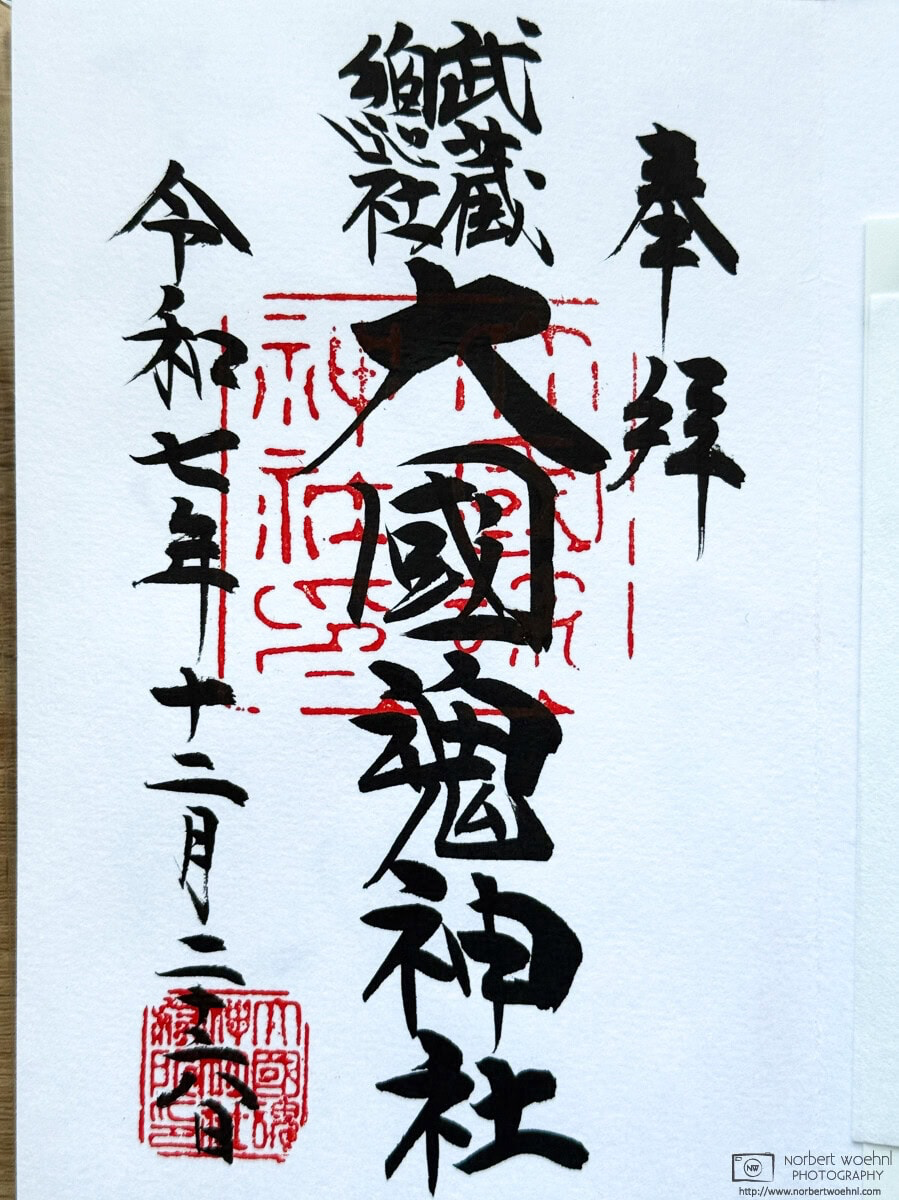 奉拝
武蔵
総社
大國魂神社
令和七年十二月二十六日
大國魂
神社印
大國魂
norbert woehnl
PHOTOGRAPHY
NW
http://www.norbertwoehnl.com